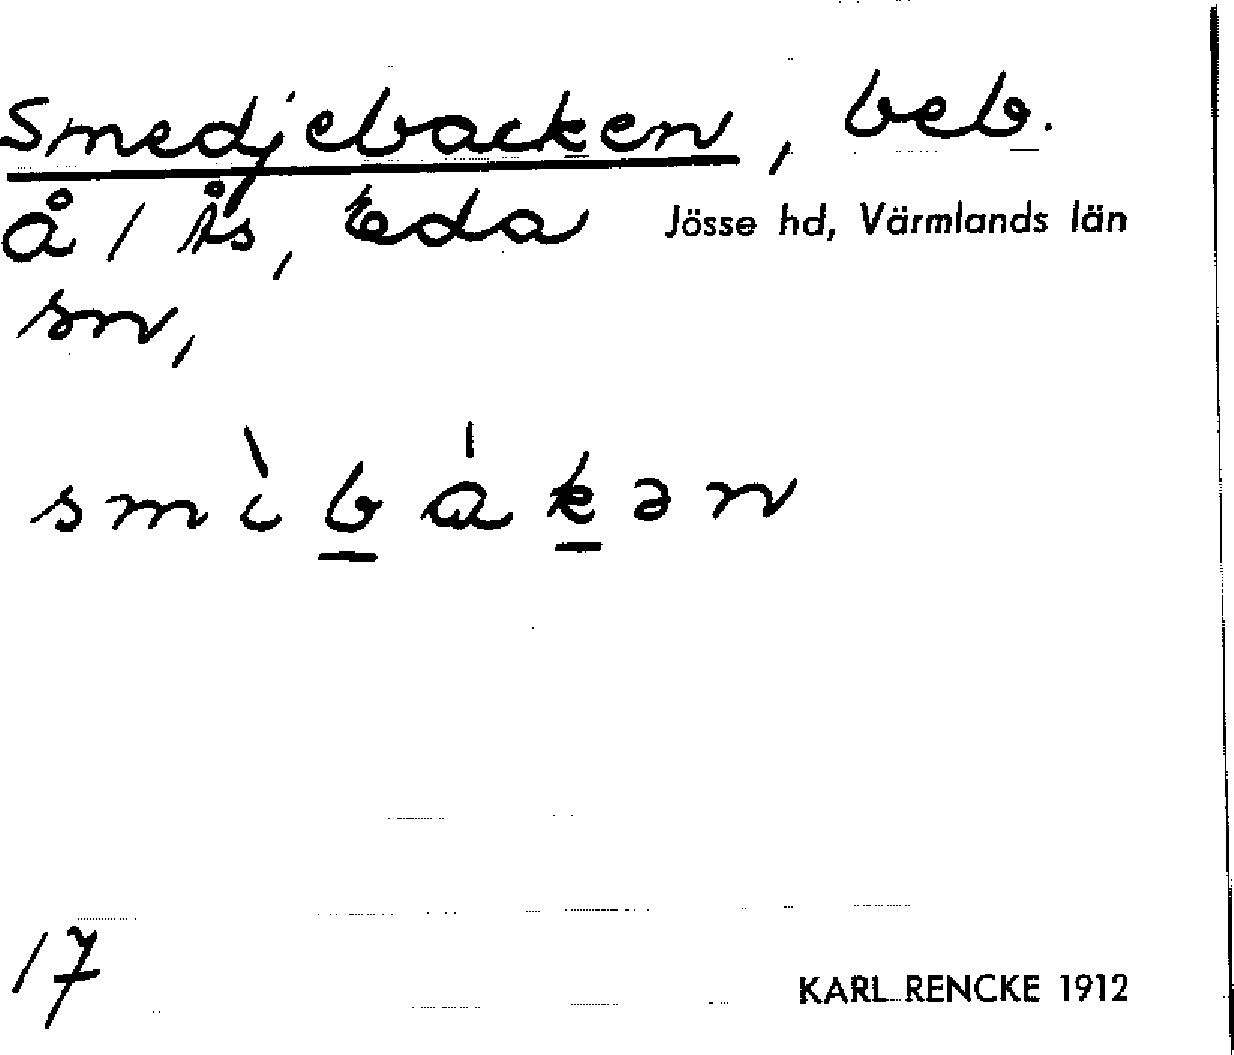 Smedjebacken, beb.
å / Ås, Eda Jösse hd, Värmlands län
sn,
smìbákən
17
KARL RENCKE 1912